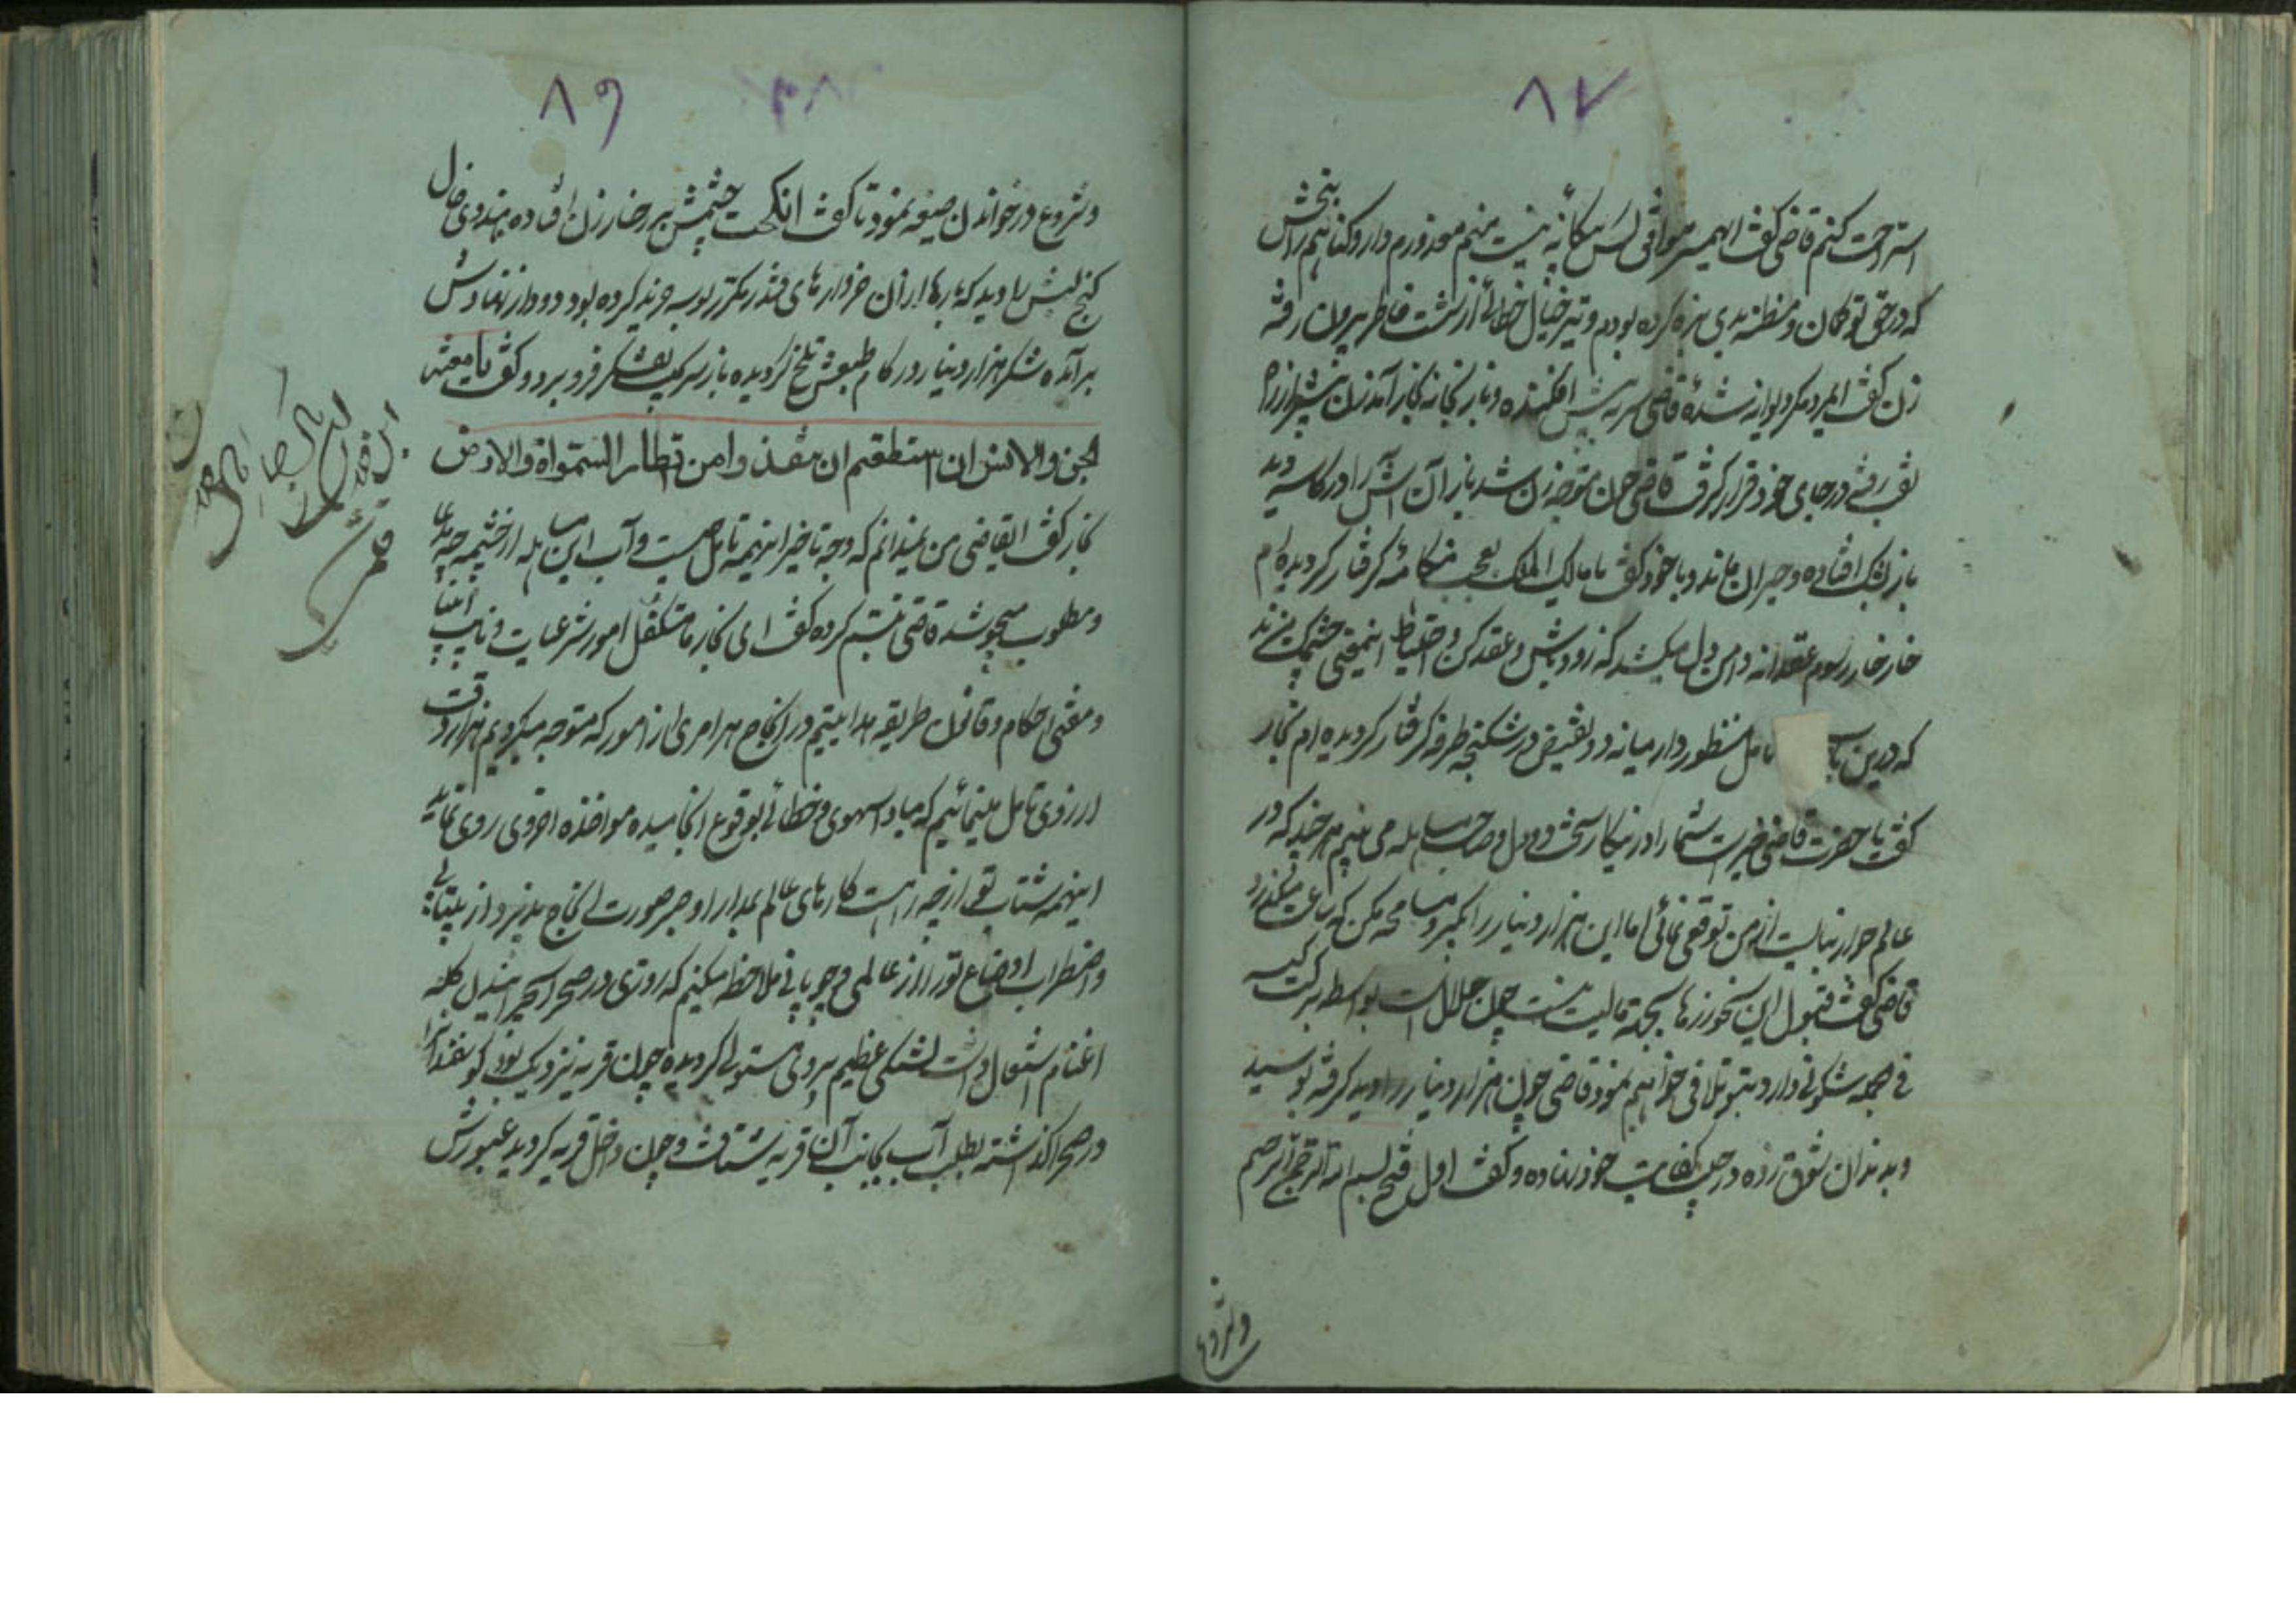 ۸۷
استراحت کنم قاضی گفت ایهمسر موافق کس بیگانه نیست منهم معذورم دار و گناهم را ببخش
که در حق تو گمان و مظنه بدی بزه کرده بودم و تیر خیال خطائی از شست خاطر بیرون رفته
زن گفت ایمرد مگر دیوانه شدهٔ قاضی سر به پیش افکنده و باز بخانه نجار آمد زن پیشتر از راه
نقب رفته در جای خود قرار گرفت قاضی چون متوجه زن شد باز آن آش را در کاسه دید
باز بشک افتاده و حیران ماند و با خود گفت یا مالک الملک بعجب هنگامهٔ گرفتار گردیده‌ام
خار خار رسوم عقلانه دامن دل میکشد که زود باش و عقد کن و احتیاط اینمعنی چشمک میزند
که درین تامل منظور دار میانه دو نقیض در شکنجه طرفه گرفتار گردیده ام نجار
گفت یا حضرت قاضی خیر است شما را در اینکار سخت دو دل و صاحب مساهله می بینم هر چند که در
عالم جوار نبایست از من توقعی نمائی اما این هزار دینار را بگیر و مسامحه مکن که ساعت میگذرد
قاضی گفت قبول این نحو زرها بجهة ما لیت نیست چون حلال است بواسطه برکت کیسه
فی الجمله شگونی دارد بتو تلافی خواهیم نمود قاضی چون هزار دینار را دید گرفته بوسید
و بدندان شوق زده در جیب کفایت خود نهاده و گفت اول فتح بسم الله الرحمن الرحیم
و شروع
۸۶
و شروع در خواندن صیغه نمود تا گفت انکحت چشمش بر رخسار زن افتاده هندوی خال
کنج لبش را دید که بارها از آن خروارهای قند مکرر بوسه خرید کرده بود دود از نهادش
برآمده شکر هزار دینار در کام طبعش تلخ گردیده باز سر بجیب تفکر فرو برد و گفت یا معشر
الجن و الانس ان استطعتم ان تنفذوا من اقطار السموات و الارض
نجار گفت ایقاضی من نمیدانم که وجه تاخیر اینهمه تامل چیست و آب این مساهله از چشمه چه مدعا
و مطلوب میجوشد قاضی تبسم کرده گفت ای نجار ما متکفل امور شرعیات و نایب انبیا
و مفتی احکام و قانون طریقه هدایتیم در انجاح هر امری از امور که متوجه میگردیم هزار دقت
از روی تامل مینمائیم که مبادا سهوی و خطائی بوقوع انجامیده مواخذه اخروی روی نماید
اینهمه شتاب تو از چه راهست کارهای عالم بمدارا و صبر صورت انجاح پذیرد از بیتابی
و اضطراب اوضاع تو را از عالمی و چوپانی ملاحظه میکنیم که روزی در صحرا بچرانیدن گله
اغنام اشتغال داشت تشنگی عظیم بر وی مستولی گردیده چون قریه نزدیک بود گوسفند آنرا
در صحرا گذاشته بطلب آب بجانب آن قریه شتافت و چون داخل قریه گردید عبورش